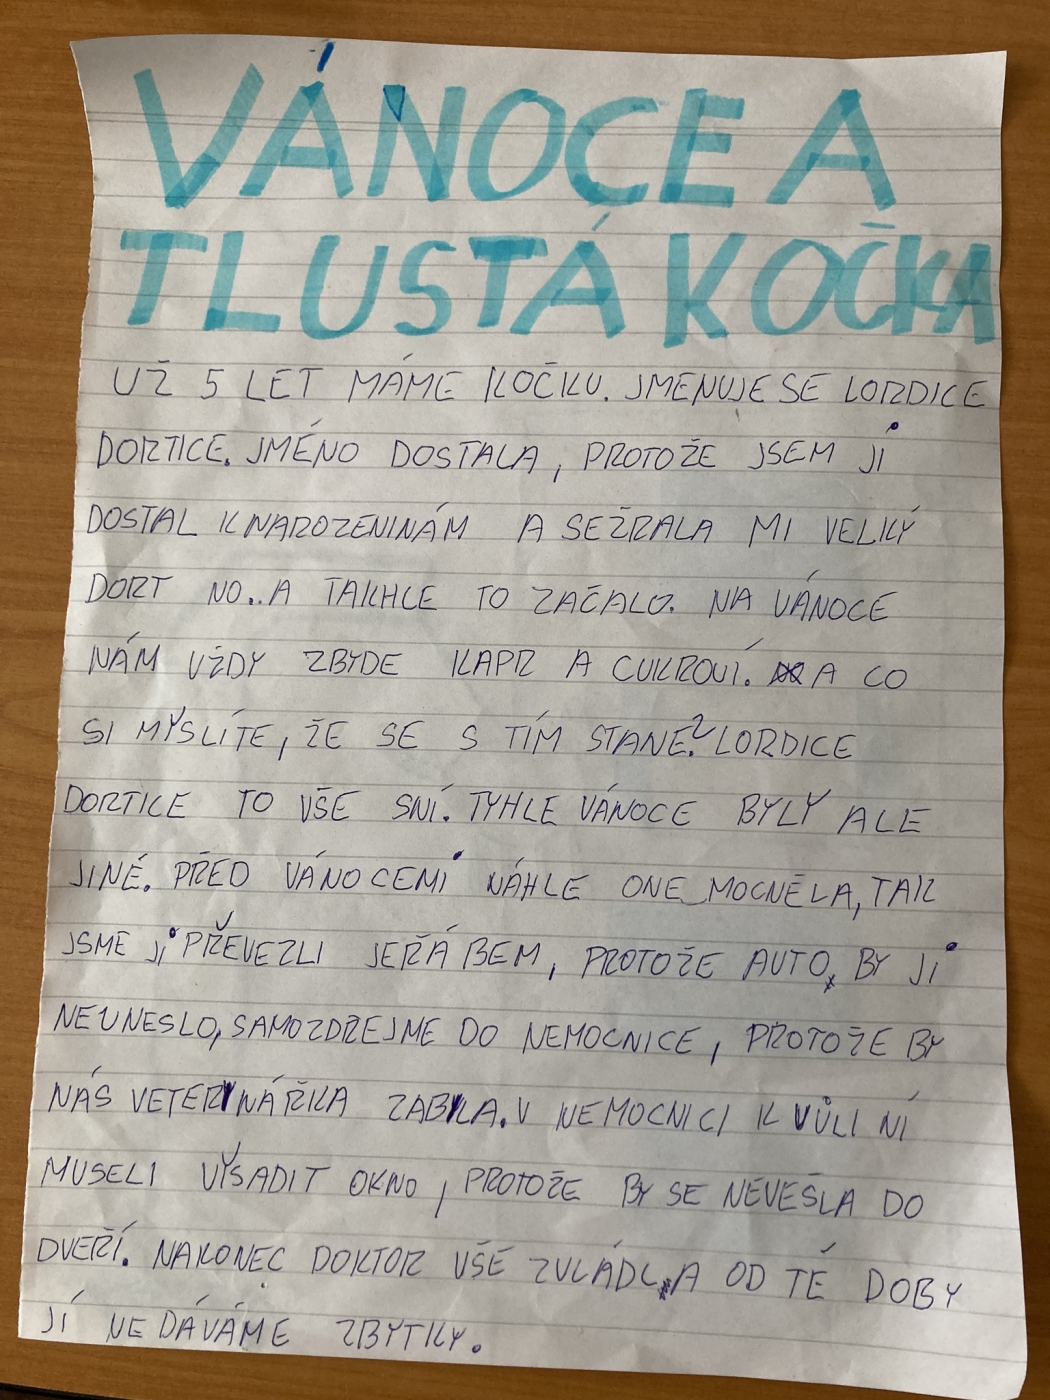 VÁNOCE A
TLUSTÁ KOČKA
UŽ 5 LET MÁME KOČKU. JMENUJE SE LORDICE
DORTICE. JMÉNO DOSTALA, PROTOŽE JSEM JI
DOSTAL K NAROZENINÁM A SEŽRALA MI VELKÝ
DORT NO.. A TAKHLE TO ZAČALO. NA VÁNOCE
NÁM VŽDY ZBYDE KAPR A CUKROVÍ. A CO
SI MYSLÍTE, ŽE SE S TÍM STANE? LORDICE
DORTICE TO VŠE SNÍ. TYHLE VÁNOCE BYLY ALE
JINÉ. PŘED VÁNOCEMI NÁHLE ONEMOCNĚLA, TAK
JSME JI PŘEVEZLI JEŘÁBEM, PROTOŽE AUTO BY JI
NEUNESLO, SAMOZDŘEJMĚ DO NEMOCNICE, PROTOŽE BY
NÁS VETERINÁŘKA ZABILA. V NEMOCNICI KVŮLI NÍ
MUSELI VYSADIT OKNO, PROTOŽE BY SE NEVEŠLA DO
DVEŘÍ. NAKONEC DOKTOR VŠE ZVLÁDL A OD TÉ DOBY
JÍ NEDÁVÁME ZBYTKY.